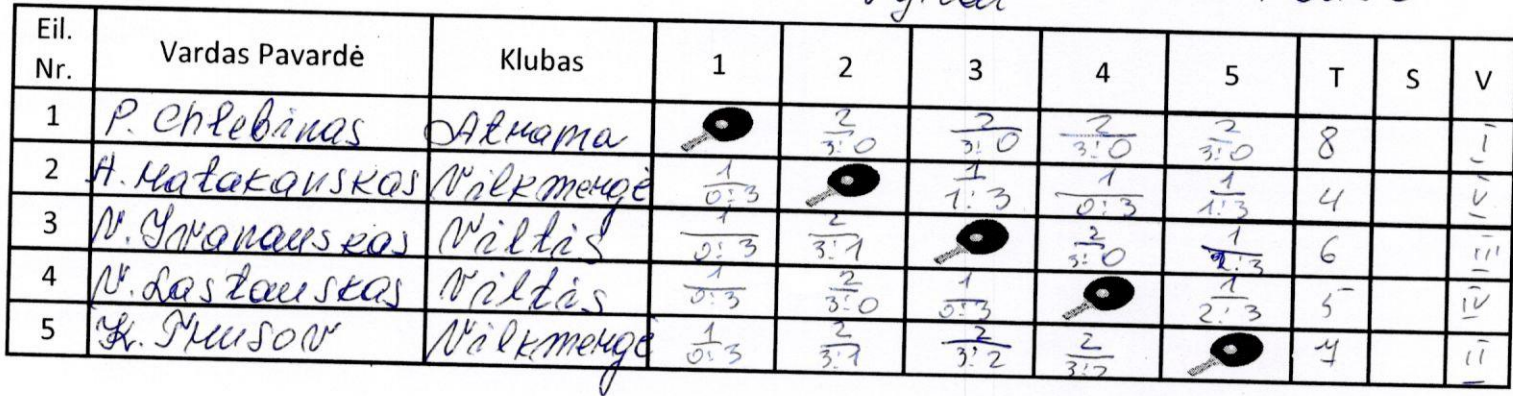 Eil. Nr. Vardas Pavardė Klubas 1 2 3 4 5 T S V
1 P. Chlebinas Atmama 2 3:0 2 3:0 2 3:0 2 3:0 8 I
2 A. Matakauskas Vilkmergė 1 0:3 1 1:3 1 0:3 1 1:3 4 V
3 V. Ivanauskas Viltis 1 0:3 2 3:1 2 3:0 1 2:3 6 III
4 V. Lastauskas Viltis 1 0:3 2 3:0 1 0:3 1 2:3 5 IV
5 K. Trusov Vilkmergė 1 0:3 2 3:1 2 3:2 2 3:2 7 II